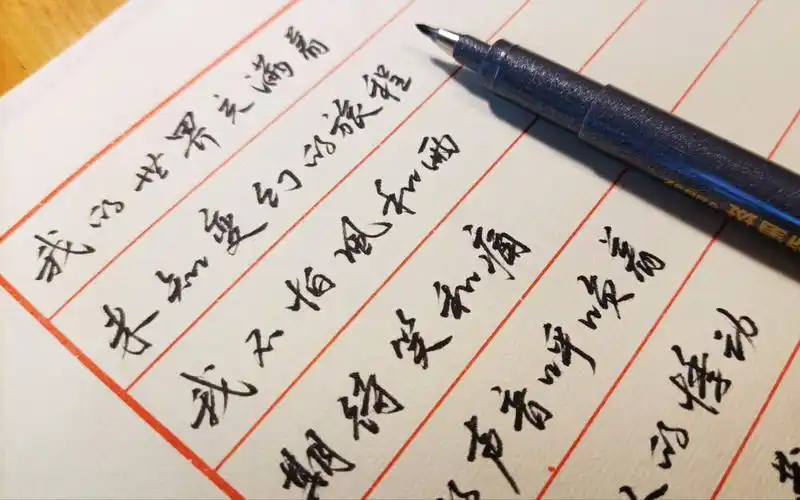 我的世界充满着
未知变幻的旅程
我不怕风和雨
期待笑和痛
的声音呼唤着
的悸动